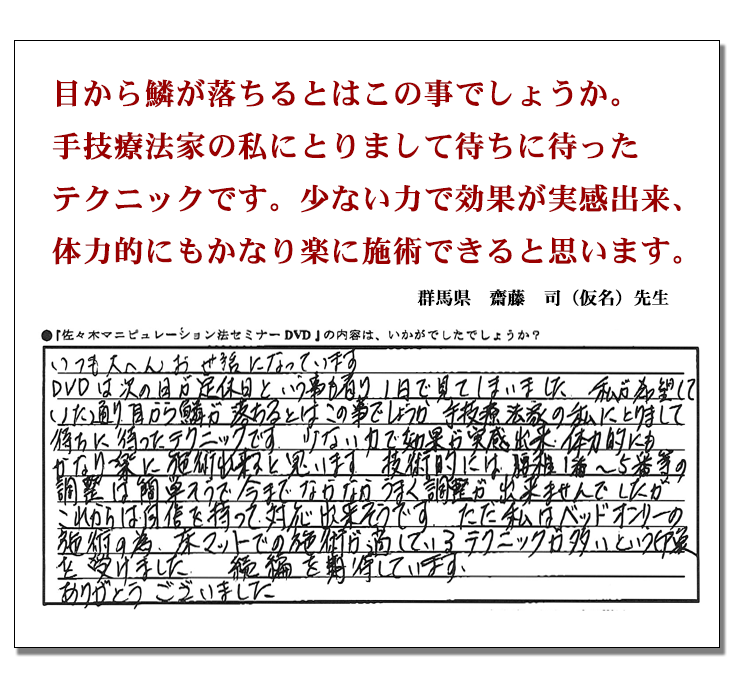 目から鱗が落ちるとはこの事でしょうか。
手技療法家の私にとりまして待ちに待った
テクニックです。少ない力で効果が実感出来、
体力的にもかなり楽に施術できると思います。
群馬県　齋藤　司（仮名）先生
●『佐々木マニピュレーション法セミナーDVD』の内容は、いかがでしたでしょうか？
いつも大へんお世話になっています
DVDは次の日が定休日という事も有り1日で見てしまいました 私が希望して
いた通り目から鱗が落ちるとはこの事でしょうか 手技療法家の私にとりまして
待ちに待ったテクニックです 少ない力で効果が実感出来 体力的にも
かなり楽に施術出来ると思います 技術的には腰椎1番～5番等の
調整は簡単そうで今までなかなかうまく調整が出来ませんでしたが
これからは自信を持って対応出来そうです ただ私はベッドオンリーの
施術の為、床マットでの施術が適しているテクニックが多いという印象
を受けました 続編を期待しています.
ありがとうございました